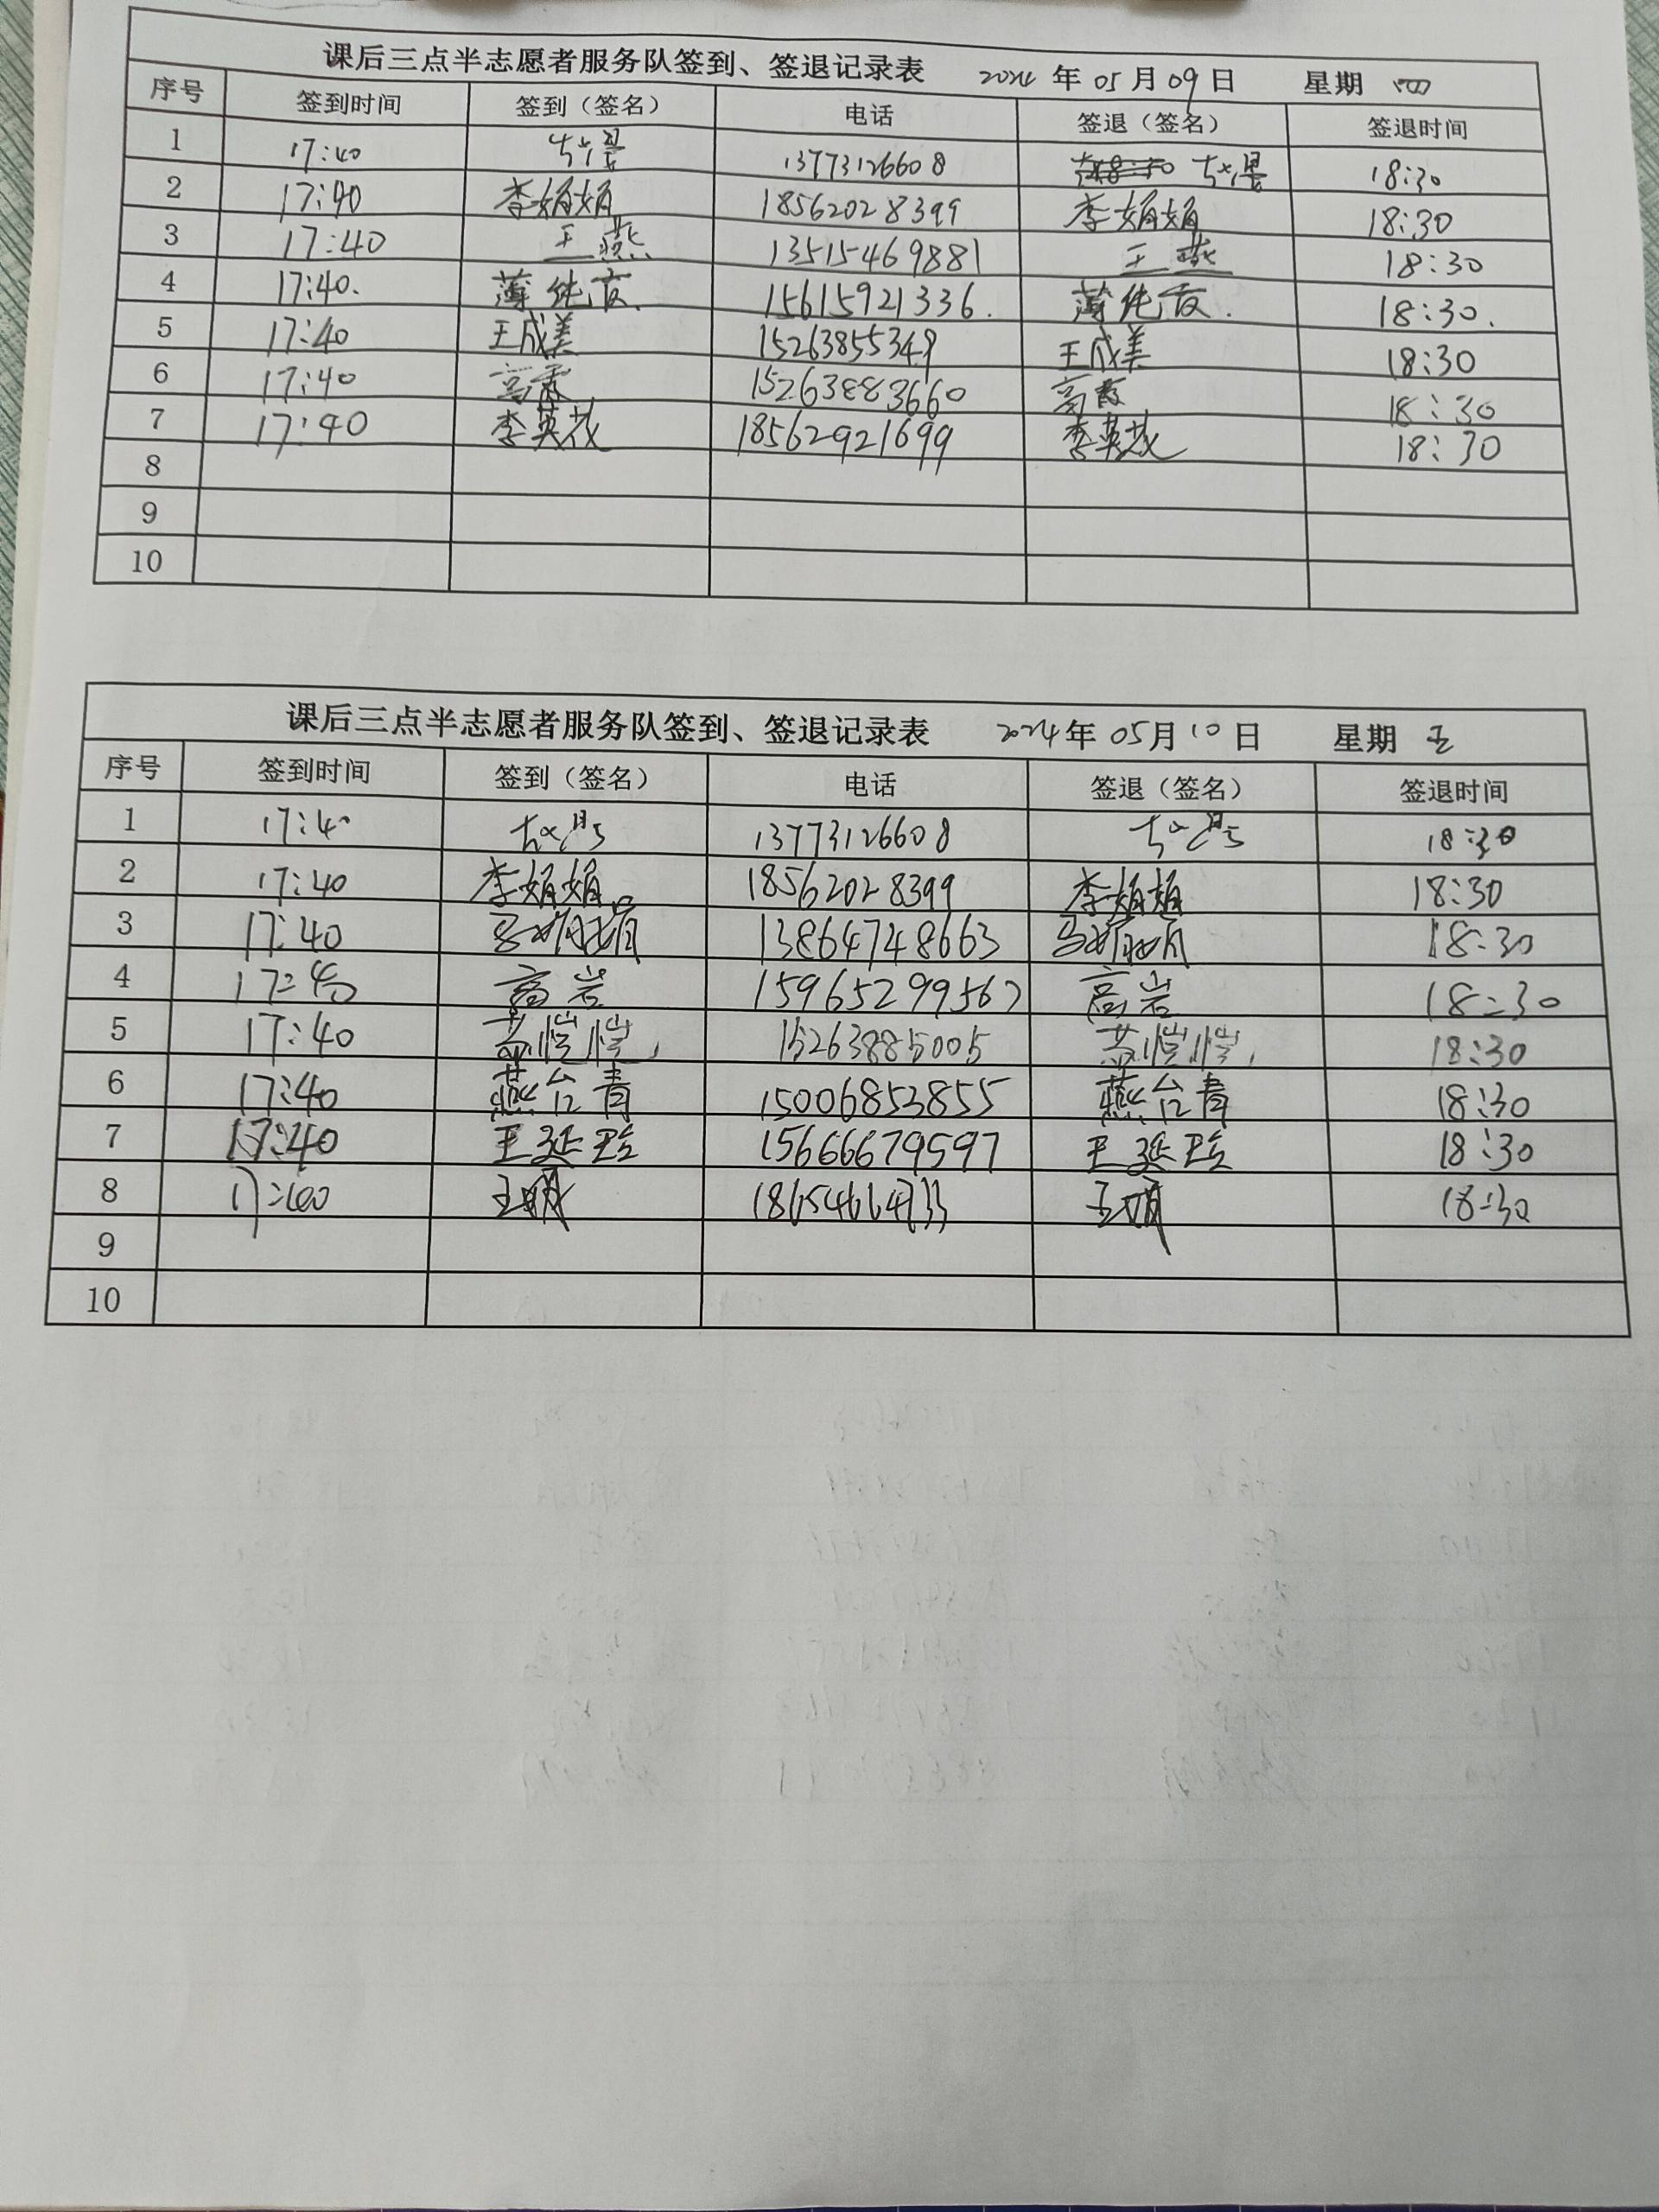 课后三点半志愿者服务队签到、签退记录表 2024 年 05 月 09 日 星期 四
序号 签到时间 签到（签名） 电话 签退（签名） 签退时间
1 17:40 13773126608 18:30
2 17:40 李娟娟 18562028399 李娟娟 18:30
3 17:40 王燕 13515469881 王燕 18:30
4 17:40. 薄纯霞. 15615921336. 薄纯霞. 18:30.
5 17:40 王成美 15263855349 王成美 18:30
6 17:40 高霞 15263883660 高霞 18:30
7 17:40 李英茂 18562921699 李英茂 18:30
8
9
10
课后三点半志愿者服务队签到、签退记录表 2024 年 05 月 10 日 星期 五
序号 签到时间 签到（签名） 电话 签退（签名） 签退时间
1 17:40 13773126608 18:30
2 17:40 李娟娟 18562028399 李娟娟 18:30
3 17:40 13864748663 18:30
4 17:40 高岩 15965299567 高岩 18:30
5 17:40 苏恺恺, 15263885005 苏恺恺, 18:30
6 17:40 燕台青 15006853855 燕台青 18:30
7 17:40 王延玲 15666679597 王延玲 18:30
8 17:40 18654664733 18:30
9
10